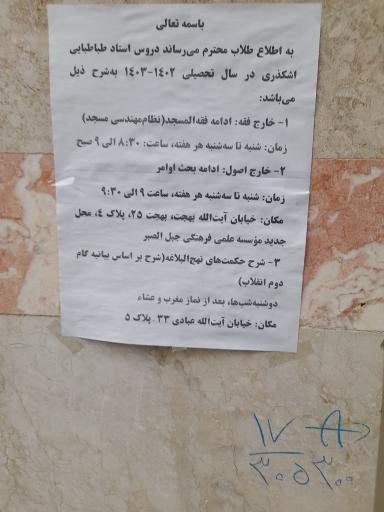 باسمه تعالی
به اطلاع طلاب محترم می‌رساند دروس استاد طباطبایی
اشکذری در سال تحصیلی ۱۴۰۲-۱۴۰۳ به‌شرح ذیل
می‌باشد:
۱- خارج فقه: ادامه فقه‌المسجد(نظام‌مهندسی مسجد)
زمان: شنبه تا سه‌شنبه هر هفته، ساعت: ۸:۳۰ الی ۹ صبح
۲- خارج اصول: ادامه بحث اوامر
زمان: شنبه تا سه‌شنبه هر هفته، ساعت ۹ الی ۹:۳۰
مکان: خیابان آیت‌الله بهجت، بهجت ۲۵، پلاک ۴، محل
جدید مؤسسه علمی فرهنگی جبل الصبر
۳- شرح حکمت‌های نهج‌البلاغه(شرح بر اساس بیانیه گام
دوم انقلاب)
دوشنبه‌شب‌ها، بعد از نماز مغرب و عشاء
مکان: خیابان آیت‌الله عبادی ۳۳ ـ پلاک ۵